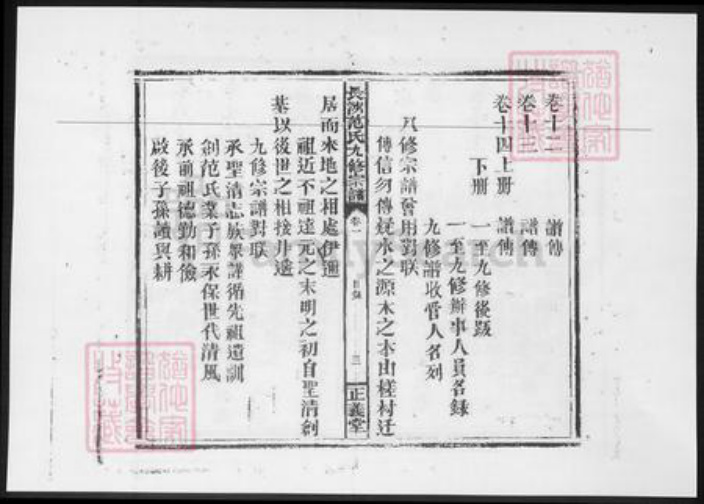 卷十二 譜傳
卷十三 譜傳
卷十四上册 譜傳
下册 一至九修後跋
一至九修辦事人員名錄
九修譜收管人名列
八修宗譜曾用對联
傳信勿傳疑水之源木之本由槎村迁
長沙范氏九修宗譜 卷一 目録 三 正義堂
居而来地之相處伊邇
祖近不祖遠元之末明之初自聖清創
基以後世之相接井遥
九修宗譜对联
承聖清志族眾謹循先祖遺訓
創范氏業子孫永保世代清風
承前祖德勤和儉
啟後子孫讀與耕